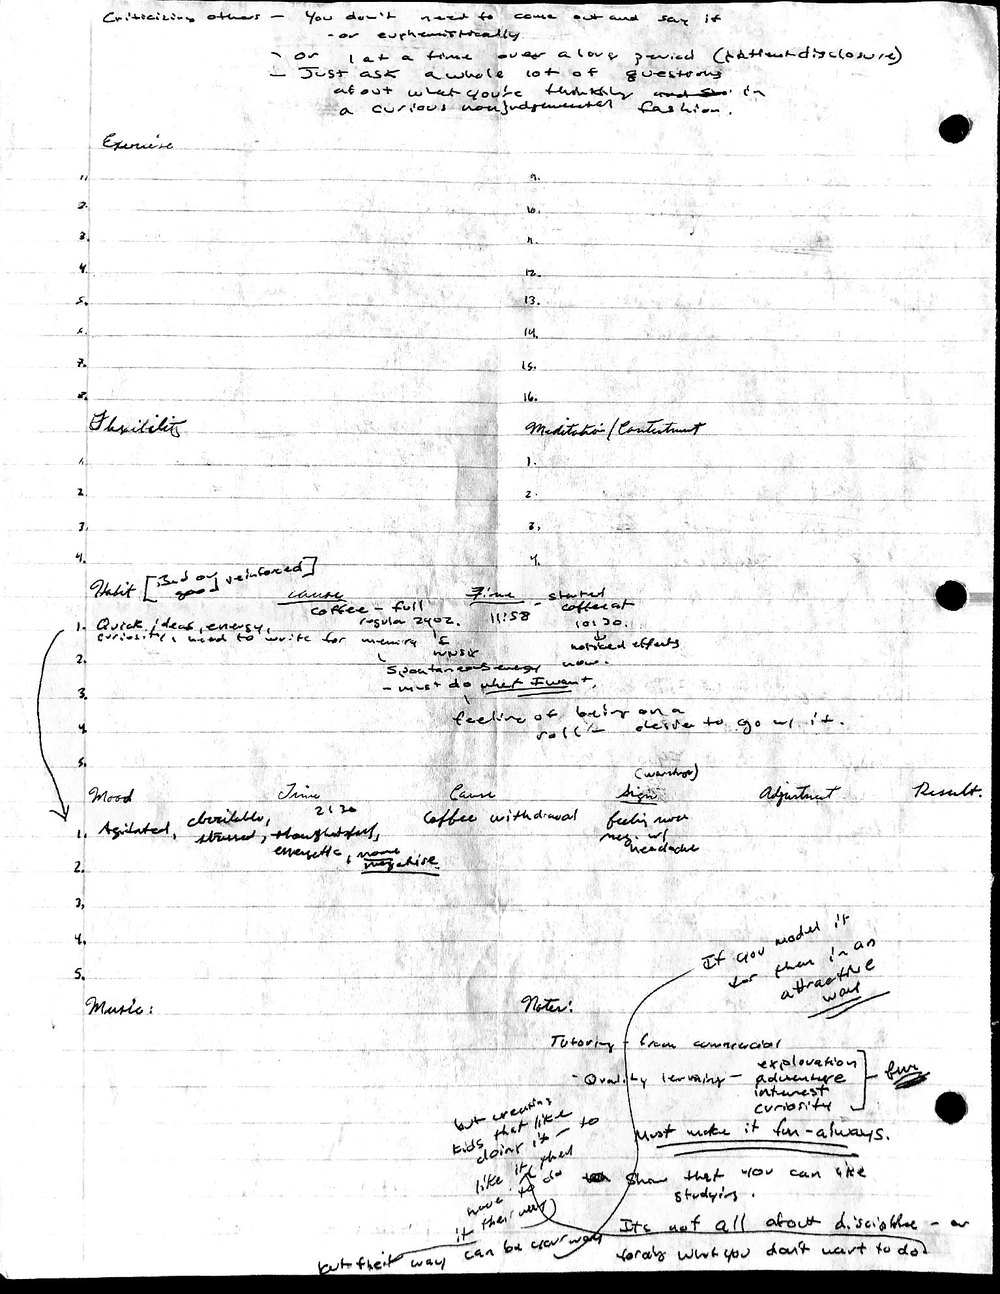 Criticizing others - You don't need to come out and say it
- or euphemistically
- or 1 at a time over a long period (patient disclosure)
- Just ask a whole lot of questions
about what you're thinking in
a curious nonjudgemental fashion.
Exercise
1. 9.
2. 10.
3. 11.
4. 12.
5. 13.
6. 14.
7. 15.
8. 16.
Flexibility Meditation/Contentment
1. 1.
2. 2.
3. 3.
4. 4.
Habit [Bad or good reinforced] cause Time - started
coffee - full coffee at
regular 24oz. 11:58 10:20.
1. Quick ideas, energy,
curiosities, need to write for memory &
noticed effects
now.
2. spontaneous energy
- must do what I want.
3.
feeling of being on a
roll - desire to go w/ it.
4.
5.
Mood Time Cause Sign Adjustment Result.
2:20
1. Agitated,
stressed, thoughtful,
energetic, more
negative.
coffee withdrawal
feeling more
neg. w/
headache
2.
3.
4.
5.
If you model it
for them in an
attractive
way
Music: Notes:
Tutoring - from commercial
- Quality learning - exploration
adventure
interest
curiosity
- fun
Must make it fun - always.
Show that you can like
studying.
Its not all about discipline - or
forcing what you don't want to do
but creating
kids that like
doing it - to
like it, they
have to do
it their way
but their way can be your way